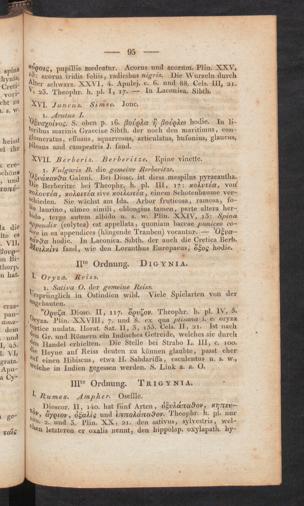 — 95 —
pupillis medentur. Acorus und acorum. Plin. XXV,
acorus iridis foliis, radicibus nigris. Die Wurzeln durch
Alter schwarz. XXVI, 4. Apulej. c. 6. und 88. Cels. III, 21.
V, 23. Theophr. h. pl. I, 17. — In Laconica. Sibth.
XVI. Juncus. Simse. Jonc.
1. Acutus L.
Ὀξυσχοῖνος. S. oben p. 16. βούρλα ἢ βρύλλα hodie. In li-
toribus marinis Graeciae Sibth. der noch den maritimus, con-
glomeratus, effusus, squarrosus, articulatus, bufonius, glaucus,
pilosus und campestris J. fand.
XVII. Berberis. Berberitze. Epine vinette.
1. Vulgaris B. die gemeine Berberitze.
Ὀξυάκανθα Galeni. Bei Diosc. ist diess mespilus pyracantha.
Die Berberitze bei Theophr. h. pl. III, 17: κολυτέα, val
κολουτέα, κολοιτέα sive κολοιτία, einem Schotenbaume ver-
schieden. Sie wächst am Ida. Arbor fruticosa, ramosa, fo-
liis laurino, salicis simili, oblongius tamen, parte altera her-
bido, tergo autem albido u. s. w. Plin. XXIV, 13: Spina
appendix (colytea) est appellata; quoniam baccae puniceo co-
lore in ea appendices (hängende Trauben) vocantur. — Ὀξυα-
κάνθα hodie. In Laconica. Sibth. der auch die Cretica Berb.
fand, wie den Loranthus Europaeus, ὄξος hodie.
IIte Ordnung. DIGYNIA.
I. Oryza. Reiss.
1. Sativa O. der gemeine Reiss.
Ursprünglich in Ostindien wild. Viele Spielarten von der
angebauten.
Ὄρυζα Diosc. II, 117. ὄρυζον. Theophr. h. pl. IV, 5.
Oryza. Plin. XXVIII, 7. und 8. ex qua ptisana; e oryza
cortice nudata. Horat. Sat. II, 3, 155. Cels. II, 21. Ist nach
den Gr. und Römern ein Indisches Getreide, welches sie durch
den Handel erhielten. Die Stelle bei Strabo L. III, c. 100.
die Heyne auf Reiss deuten zu können glaubte, passt eher
auf einen Hibiscus, etwa H. Sabdariffa, esculentus u. s. w.,
welche in Indien gegessen werden. S. Link a. a. O.
IIIte Ordnung. TRIGYNIA.
I. Rumex. Ampher. Oseille.
Dioscor. II, 140. hat fünf Arten, ὀξυλάπαθον, κηπευ-
τόν, ἄγριον, ὀξαλίς und ἱππολάπαθον. Theophr. h. pl. nur
2. und 3. Plin. XX, 21. den sativus, sylvestris, wel-
chen letzteren er oxalis nennt, den hippolap. oxylapath. hy-